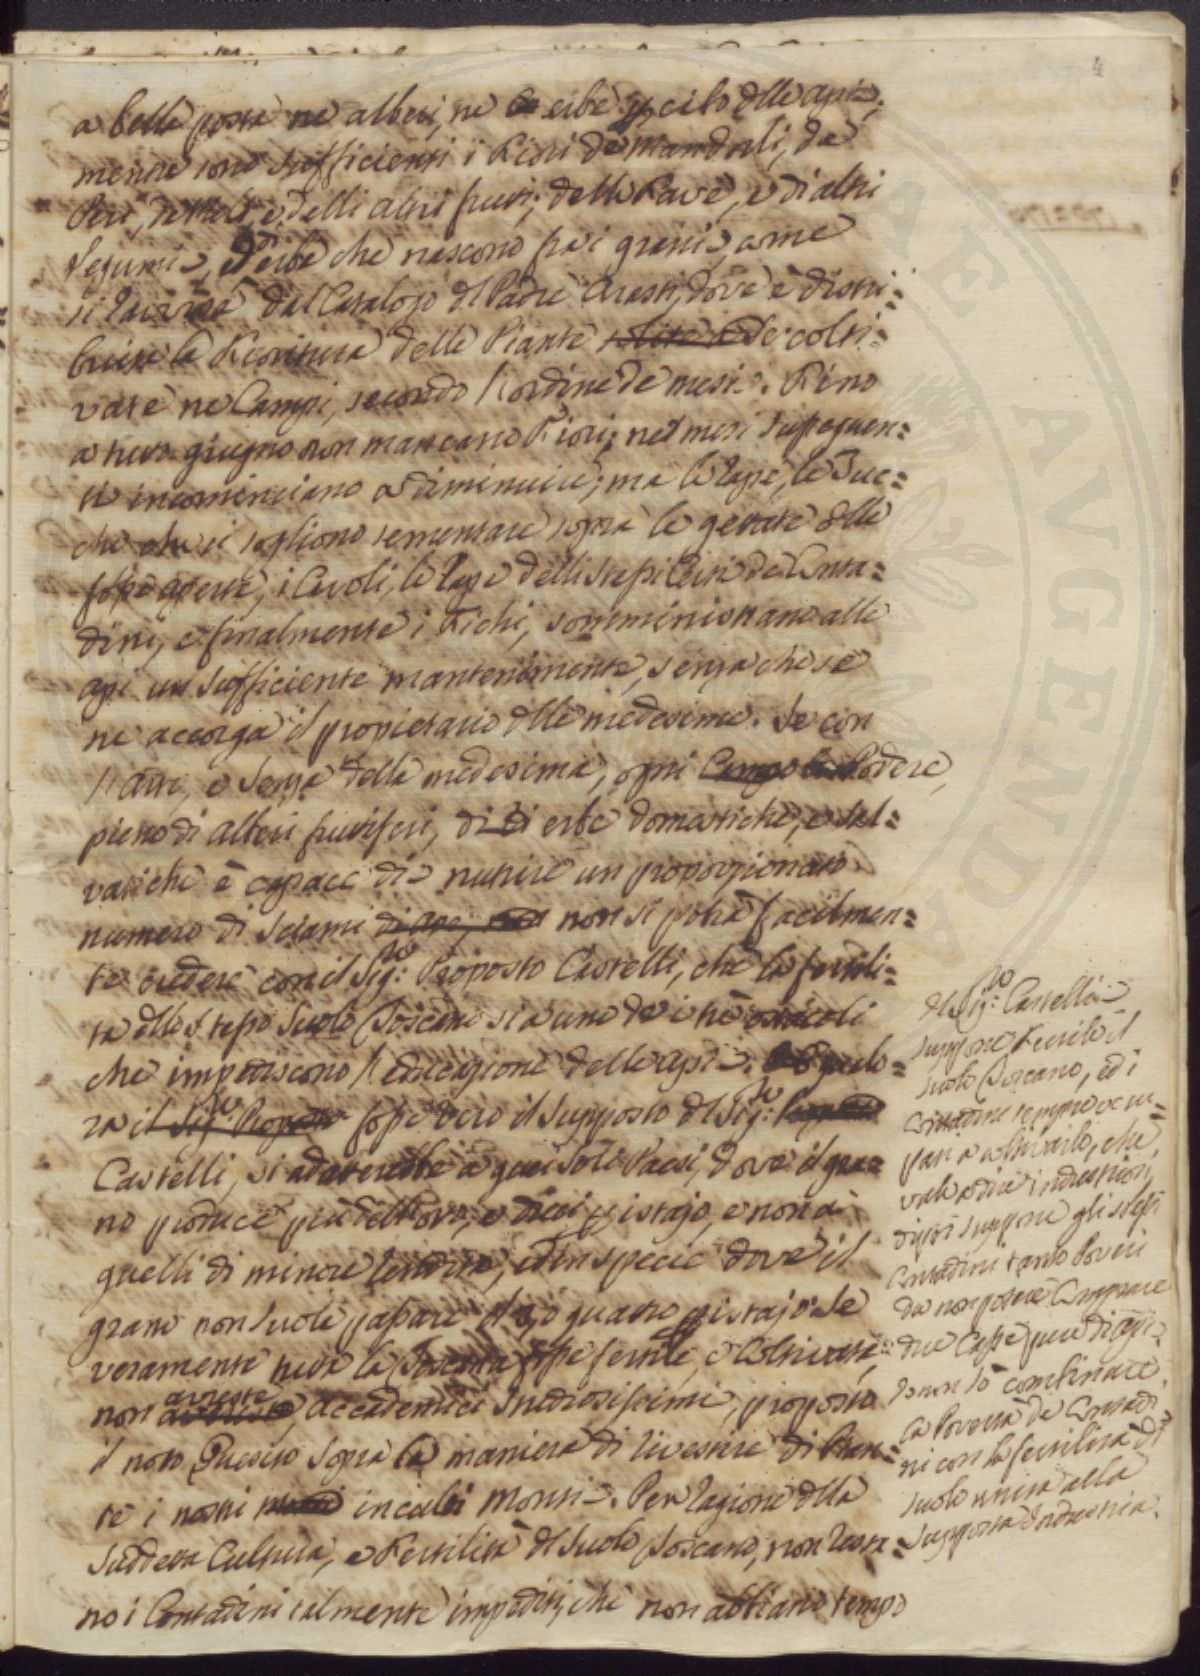 4
a bella posta ne alberi, ne erbe p cibo dlle api;
mentre sono sufficienti i Fiori de Mandorli, de
Peri, de Meli, e delli altri frutti; delle Fave, e di altri
Legumi, e di erbe che nascono fra i grani, come
si ravvisa dal Catalogo dl Padre Aresti, dove è distri:
buita la Fioritura delle Piante solite a Se colti:
vate ne Campi, secondo l'ordine de mesi. Fino
a tutto giugno non mancano Fiori; nei mesi susseguen:
ti incominciano a diminuire; ma le rape, le Zuc:
che che si sogliono sementare sopra le gettate dlle
fosse aperte, i Cavoli, le Rape delli stessi Orti de Conta:
dini, e finalmente i Fichi, somministrano alle
api un sufficiente mantenimento, senza che se
ne accorga il propietario dlle medesime. Se con
l'arte, e senza della medesima, ogni Campo Podere,
pieno di alberi fruttiferi, di erbe domestiche, e sal:
vatiche è capace di nutrire un proporzionato
numero di Sciami di ape, non si potrà facilmen:
te credere con il Sig:re Proposto Castelli, che la fertili:
tà dello stesso Suolo Toscano sia uno de i tre ostacoli
che impediscono l'educazione delle api. Qualo:
ra il Sig:re Proposto fosse vero il supposto dl Sig:re Proposto
Castelli, si adatterebbe a quei soli Paesi, dove il gra:
no produce più dell'otto, e dieci p istajo, e non a
quelli di minore rendita, ed in specie dove il
grano non suole passare il quattro p istajo. Se
veramente tutta la Toscana fosse fertile, e coltivata,
non avreste Accademici Studiosissimi, proposto
il noto Quesito sopra la maniera di rivestire di Pian:
te i nostri incolti Monti. Per ragione dlla
suddetta Cultura, e Fertilità dl Suolo Toscano, non resta:
no i Contadini talmente impediti, che non abbiano tempo
Il Sig:re Castelli
suppone fertile il
suolo Toscano, ed i
Contadini sempre occu:
pati a coltivarlo, che
vale a dire industriosi,
dipoi suppone gli stessi
Contadini tanto Poveri
da non potere Comprare
due Casse pure di api.
Io non so combinare
la Povertà de Contadi:
ni con la fertilità di
suolo unita alla
supposta Industria.